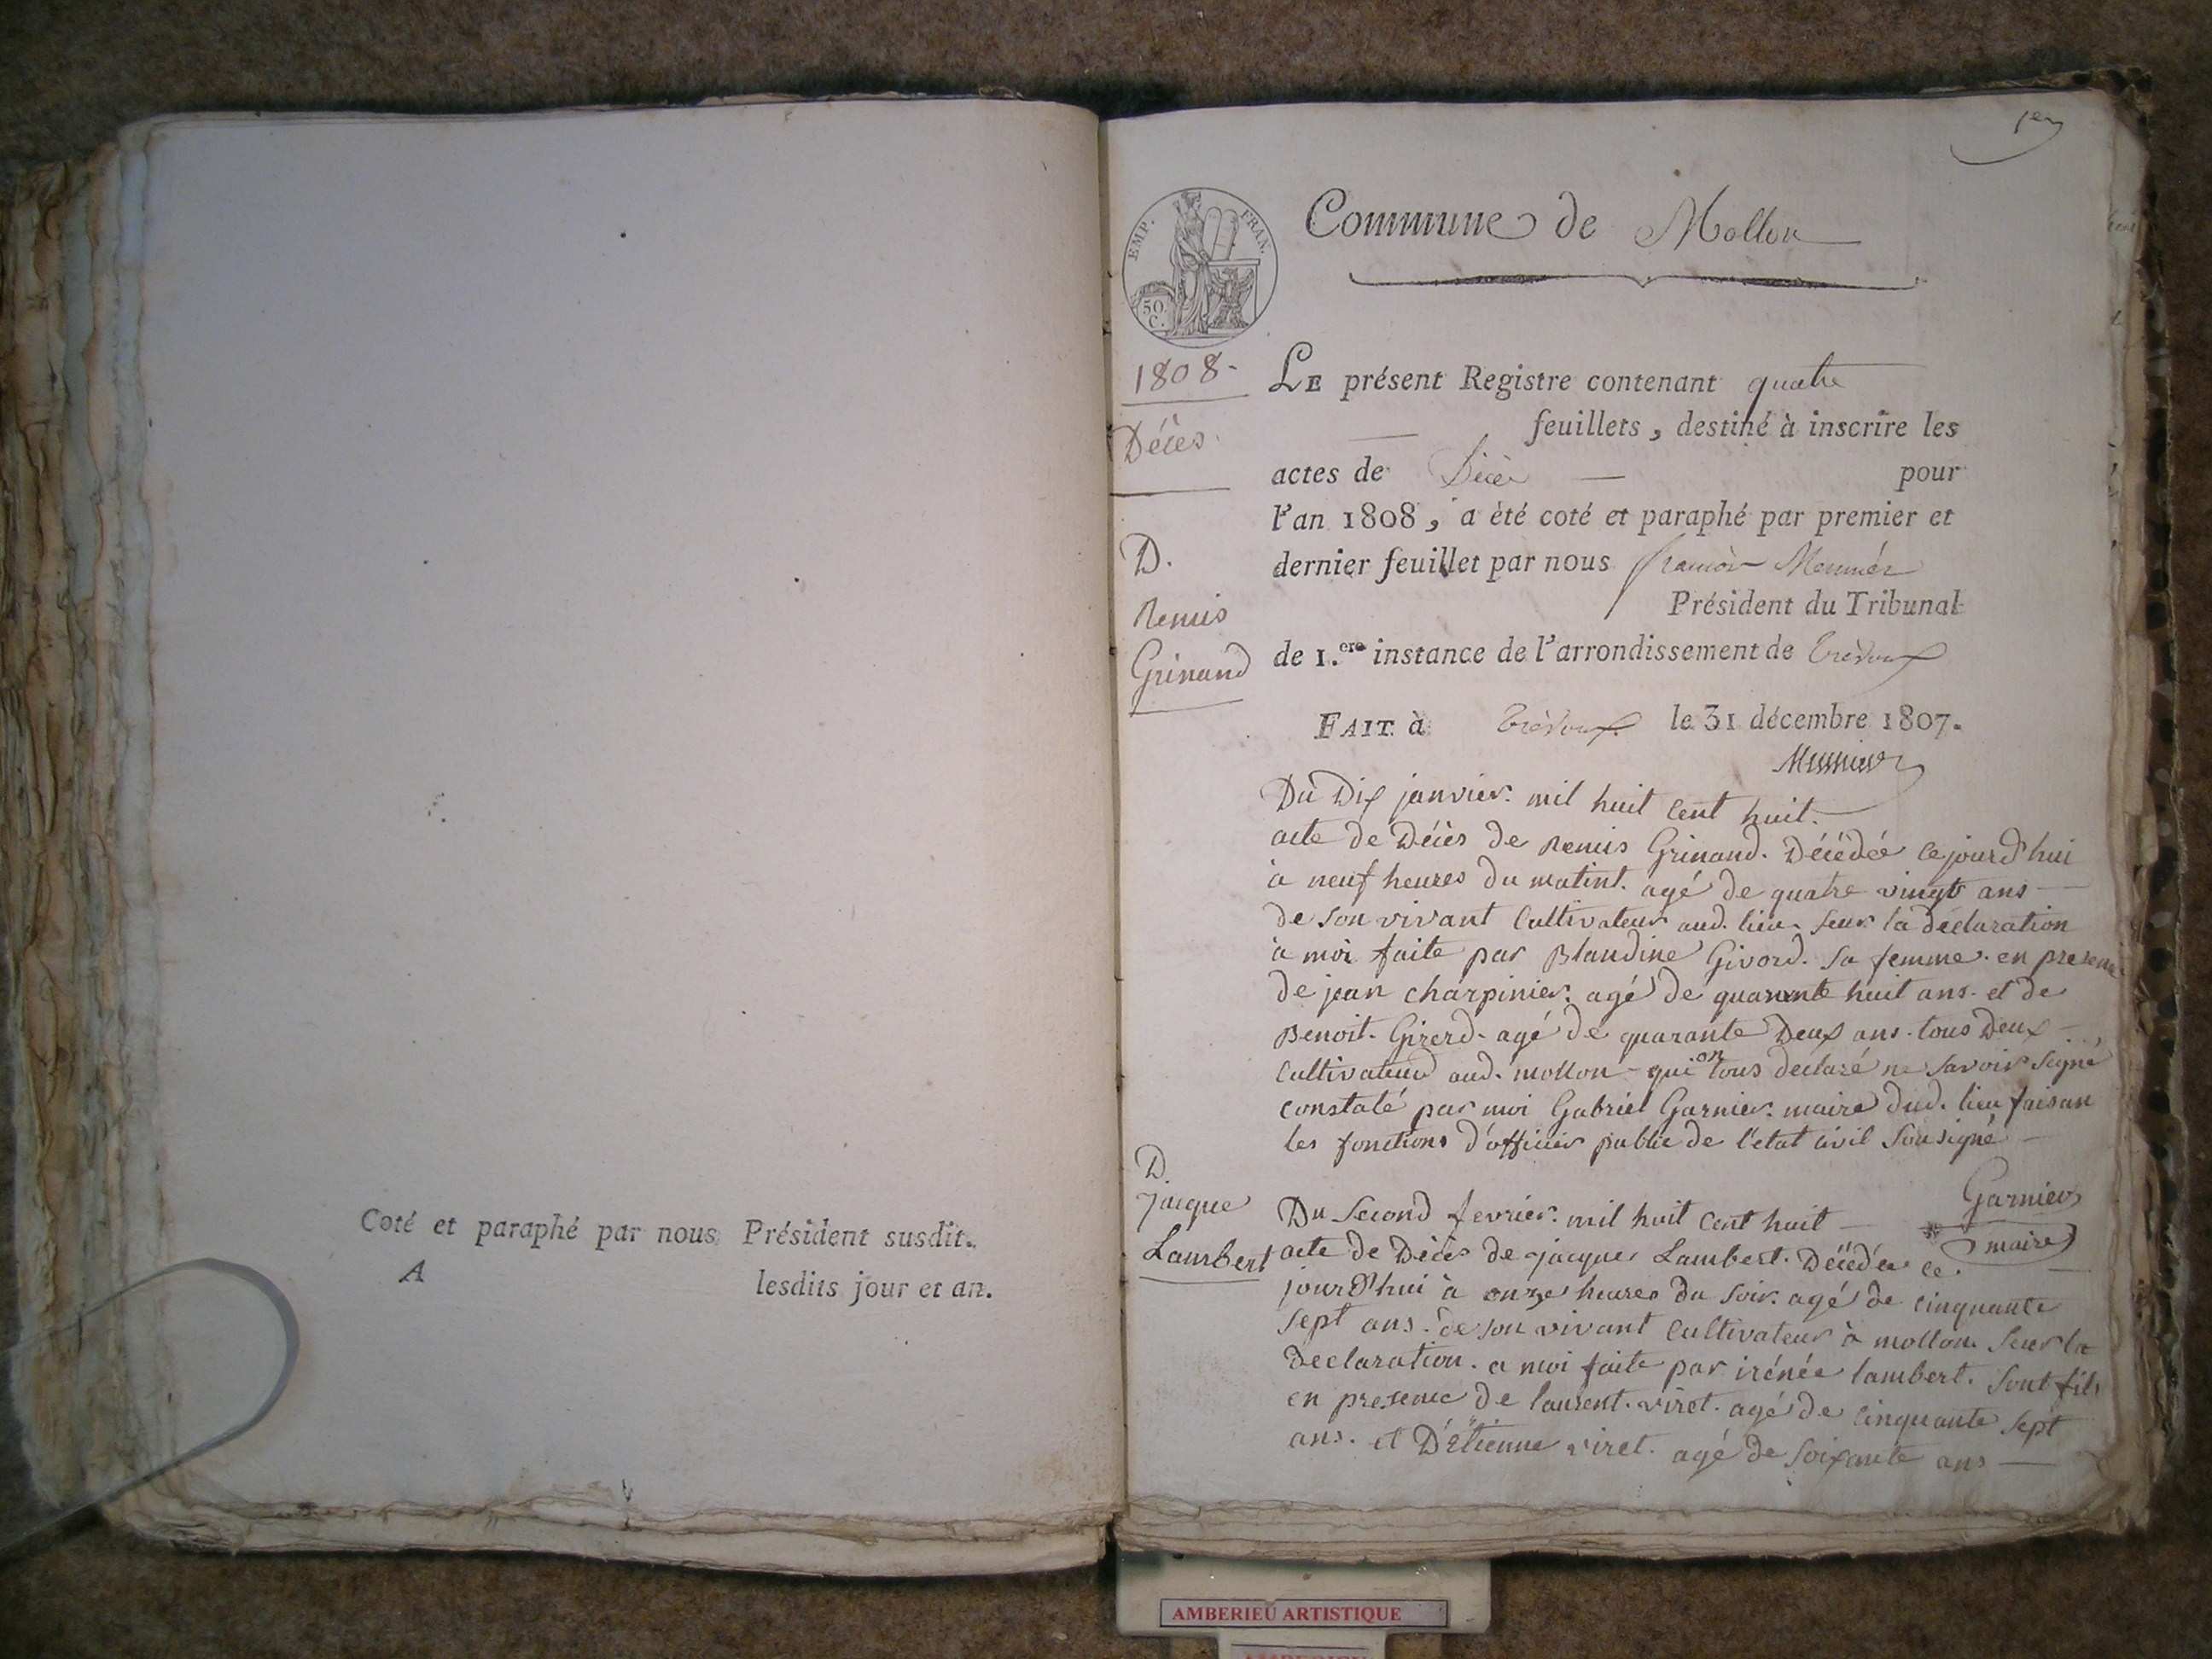 Coté et paraphé par nous Président susdit.
A lesdits jour et an.
1er
EMP. FRAN.
50
C.
Commune de Mollon
1808-
Décès.
LE présent Registre contenant quatre
feuillets, destiné à inscrire les
actes de Décès pour
l'an 1808, a été coté et paraphé par premier et
dernier feuillet par nous
Président du Tribunal
de 1.ere instance de l'arrondissement de Trévoux
FAIT à Trévoux le 31 décembre 1807.
D.
Remis
Grinand
Du Dix janvier. mil huit Cent huit.
acte de Décès de Remis Grinand. Décédée Cejourd'hui
à neuf heures du matint. agé de quatre vingt ans
de Son vivant Cultivateur aud. lieu. Seur la déclaration
à moi faite par Blandine Givord. Sa femme. en presence
de jean charpinier. agé de quarente huit ans. et de
Benoit. Girerd. agé de quarante Deux ans. tous Deux
Cultivateur aud. mollon - qui on tous declaré ne Savoir Signé
Constaté par moi Gabriel Garnier. maire dud. lieu faisan
les fonctions d'officier public de l'état civil Sousigné
Garnier
maire
D.
Jacque
Lambert
Du Second fevrier. mil huit Cent huit
acte de Décès de jacques Lambert. Décédée ce.
jourd'hui à onze heures du Soir. agé de cinquante
Sept ans. de son vivant Cultivateur à mollon. Seur la
declaration. a moi faite par irénée lambert. Sont fils
en presence de laurent. viret. agé de Cinquante Sept
ans. et D'étienne viret. agé de Soixante ans
AMBERIEU ARTISTIQUE